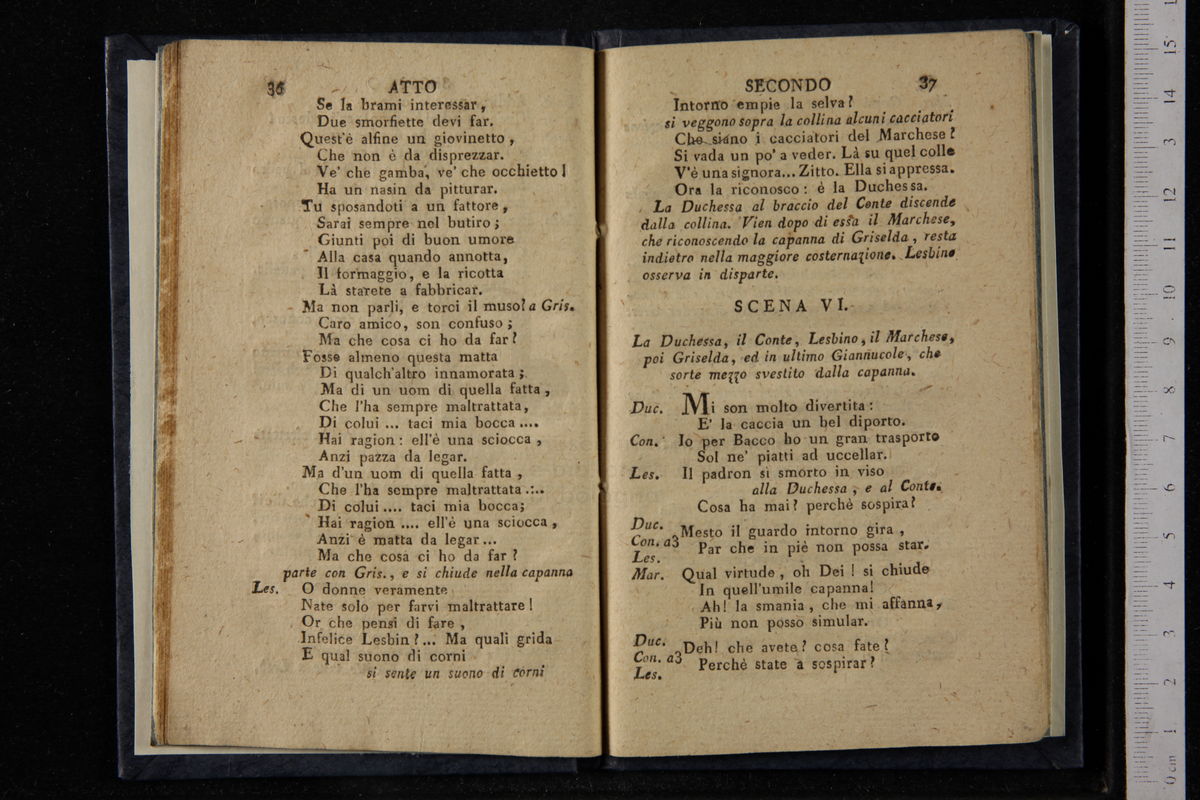 36 ATTO
Se la brami interessar,
Due smorfiette devi far.
Quest'è alfine un giovinetto,
Che non è da disprezzar.
Ve' che gamba, ve' che occhietto!
Ha un nasin da pitturar.
Tu sposandoti a un fattore,
Sarai sempre nel butiro;
Giunti poi di buon umore
Alla casa quando annotta,
Il formaggio, e la ricotta
Là starete a fabbricar.
Ma non parli, e torci il muso? a Gris.
Caro amico, son confuso;
Ma che cosa ci ho da far?
Fosse almeno questa matta
Di qualch'altro innamorata;
Ma di un uom di quella fatta,
Che l'ha sempre maltrattata,
Di colui ... taci mia bocca ....
Hai ragion: ell'è una sciocca,
Anzi pazza da legar.
Ma d'un uom di quella fatta,
Che l'ha sempre maltrattata ....
Di colui .... taci mia bocca;
Hai ragion .... ell'è una sciocca,
Anzi è matta da legar...
Ma che cosa ci ho da far?
parte con Gris., e si chiude nella capanna
Les. O donne veramente
Nate solo per farvi maltrattare!
Or che pensi di fare,
Infelice Lesbin?... Ma quali grida
E qual suono di corni
si sente un suono di corni
SECONDO 37
Intorno empie la selva?
si veggono sopra la collina alcuni cacciatori
Che siano i cacciatori del Marchese?
Si vada un po' a veder. Là su quel colle
V'è una signora... Zitto. Ella si appressa.
Ora la riconosco: è la Duchessa.
La Duchessa al braccio del Conte discende
dalla collina. Vien dopo di essa il Marchese,
che riconoscendo la capanna di Griselda, resta
indietro nella maggiore costernazione. Lesbino
osserva in disparte.
SCENA VI.
La Duchessa, il Conte, Lesbino, il Marchese,
poi Griselda, ed in ultimo Giannucole, che
sorte mezzo svestito dalla capanna.
Duc. Mi son molto divertita:
E' la caccia un bel diporto.
Con. Io per Bacco ho un gran trasporto
Sol ne' piatti ad uccellar.
Les. Il padron sì smorto in viso
alla Duchessa, e al Conte.
Cosa ha mai? perchè sospira?
Duc.
Con. a3
Les.
Mesto il guardo intorno gira,
Par che in piè non possa star.
Mar. Qual virtude, oh Dei! si chiude
In quell'umile capanna!
Ah! la smania, che mi affanna,
Più non posso simular.
Duc.
Con. a3
Les.
Deh! che avete? cosa fate?
Perchè state a sospirar?
0 cm 1 2 3 4 5 6 7 8 9 10 11 12 13 14 15